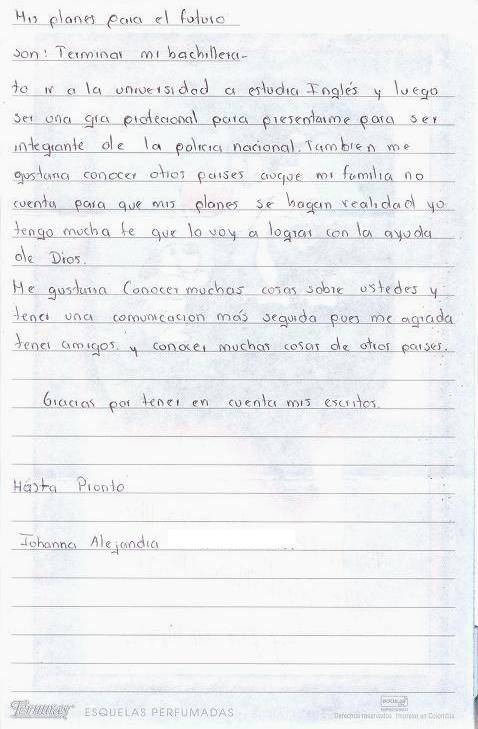 Mis planes para el futuro
son: Terminar mi bachillera-
to ir a la universidad a estudia Inglés y luego
ser una gra profecional para presentarme para ser
integrante de la policia nacional. Tambien me
gustaria conocer otros paises auque mi familia no
cuenta para que mis planes se hagan realidad yo
tengo mucha fe que lo voy a lograr con la ayuda
de Dios.
Me gustaria Conocer muchas cosas sobre ustedes y
tener una comunicacion más seguida pues me agrada
tener amigos y conocer muchas cosas de otros paises.
Gracias por tener en cuenta mis escritos.
Hasta Pronto
Johanna Alejandra
ESQUELAS PERFUMADAS
Derechos reservados Impreso en Colombia